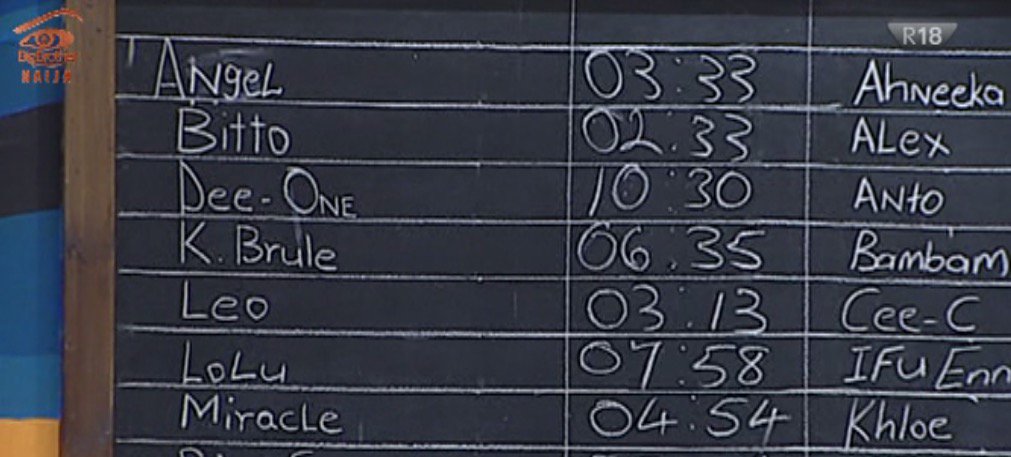 BIGBROTHER
NAIJA
R18
ANgeL 03:33 AhNeeka
Bitto 02:33 ALex
Dee-ONE 10:30 ANto
K. Brule 06:35 Bambam
Leo 03:13 Cee-C
LoLu 07:58 IFU Enn
MiracLe 04:54 Khloe